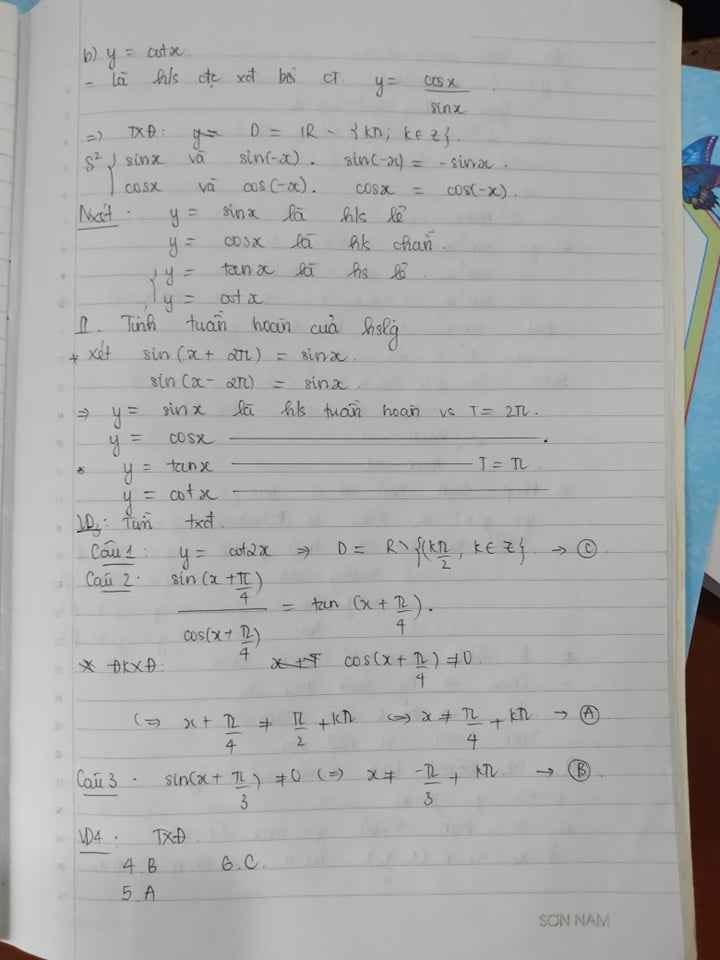 b) y = cotx
- là h/s đc xđ bởi CT y = cosx / sinx .
=> TXĐ: D = IR \ {kπ; k∈Z}.
S² { sinx và sin(-x). sin(-x) = - sinx .
cosx và cos(-x). cosx = cos(-x) .
Nxét . y = sinx là h/s lẻ
y = cosx là h/s chẵn .
{ y = tanx là hs lẻ
y = cotx
II. Tính tuần hoàn của hslg
* Xét sin(x + 2π) = sinx .
sin(x - 2π) = sinx .
=> y = sinx là h/s tuần hoàn vs T = 2π .
y = cosx ———————— .
* y = tanx ———————— T = π
y = cotx ————————
VD3: Tìm txđ
Câu 1 : y = cot2x => D = R \ {(kπ/2 , k∈Z} → Ⓒ
Câu 2 . sin(x + π/4) / cos(x + π/4) = tan (x + π/4) .
* ĐKXĐ: cos(x + π/4) ≠ 0
(=> x + π/4 ≠ π/2 + kπ <=> x ≠ π/4 + kπ → Ⓐ
Câu 3 . sin(x + π/3) ≠ 0 (=> x ≠ -π/3 + kπ → Ⓑ
VD4 . TXĐ
4 B 6. C.
5 A
SƠN NAM